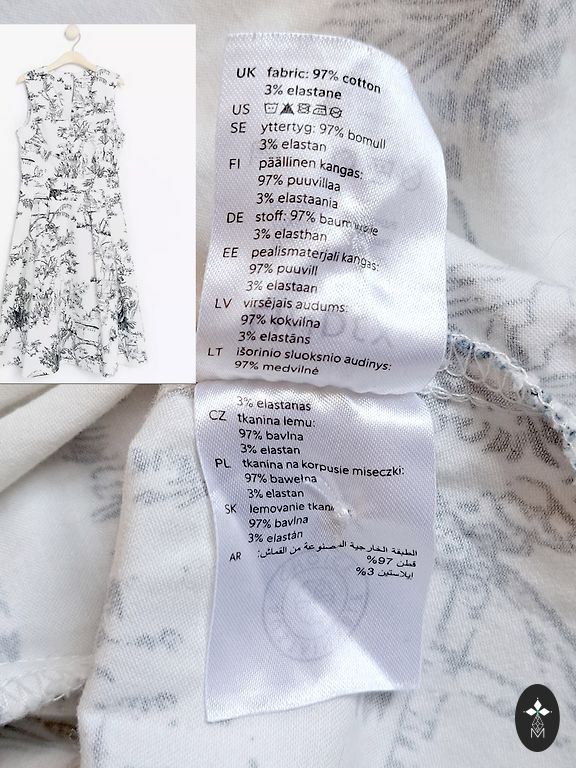 UK fabric: 97% cotton
3% elastane
US
SE yttertyg: 97% bomull
3% elastan
FI päällinen kangas:
97% puuvillaa
3% elastaania
DE stoff: 97% baumwolle
3% elasthan
EE pealismaterjali kangas:
97% puuvill
3% elastaan
LV virsējais audums:
97% kokvilna
3% elastāns
LT išorinio sluoksnio audinys:
97% medvilnė
3% elastanas
CZ tkanina lemu:
97% bavlna
3% elastan
PL tkanina na korpusie miseczki:
97% bawełna
3% elastan
SK lemovanie
97% bavlna
3% elastán
AR الطبقة الخارجية المصنوعة من القماش:
قطن 97%
إيلاستين 3%